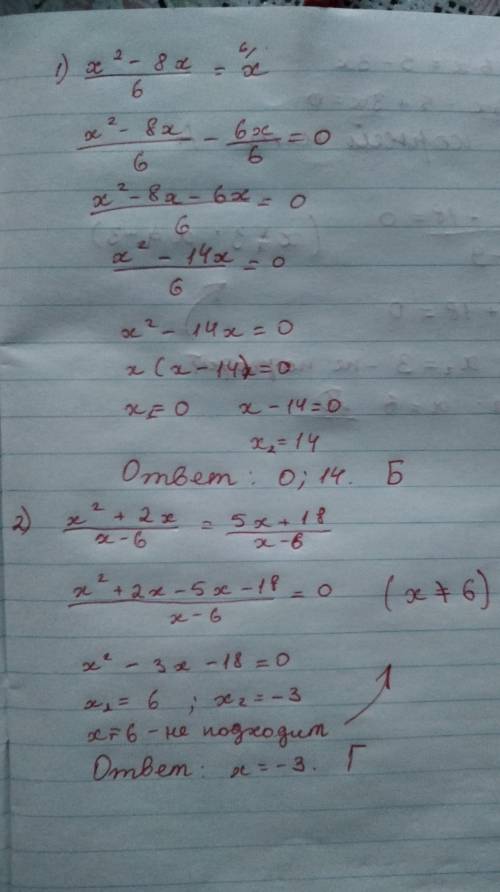 1) x² - 8x / 6 = x 6/
x² - 8x / 6 - 6x / 6 = 0
x² - 8x - 6x / 6 = 0
x² - 14x / 6 = 0
x² - 14x = 0
x (x - 14) = 0
x₁ = 0 x - 14 = 0
x₂ = 14
Ответ: 0; 14. Б
2) x² + 2x / x - 6 = 5x + 18 / x - 6
x² + 2x - 5x - 18 / x - 6 = 0 (x ≠ 6)
x² - 3x - 18 = 0
x₁ = 6 ; x₂ = -3
x = 6 - не подходит
Ответ: x = -3. Г